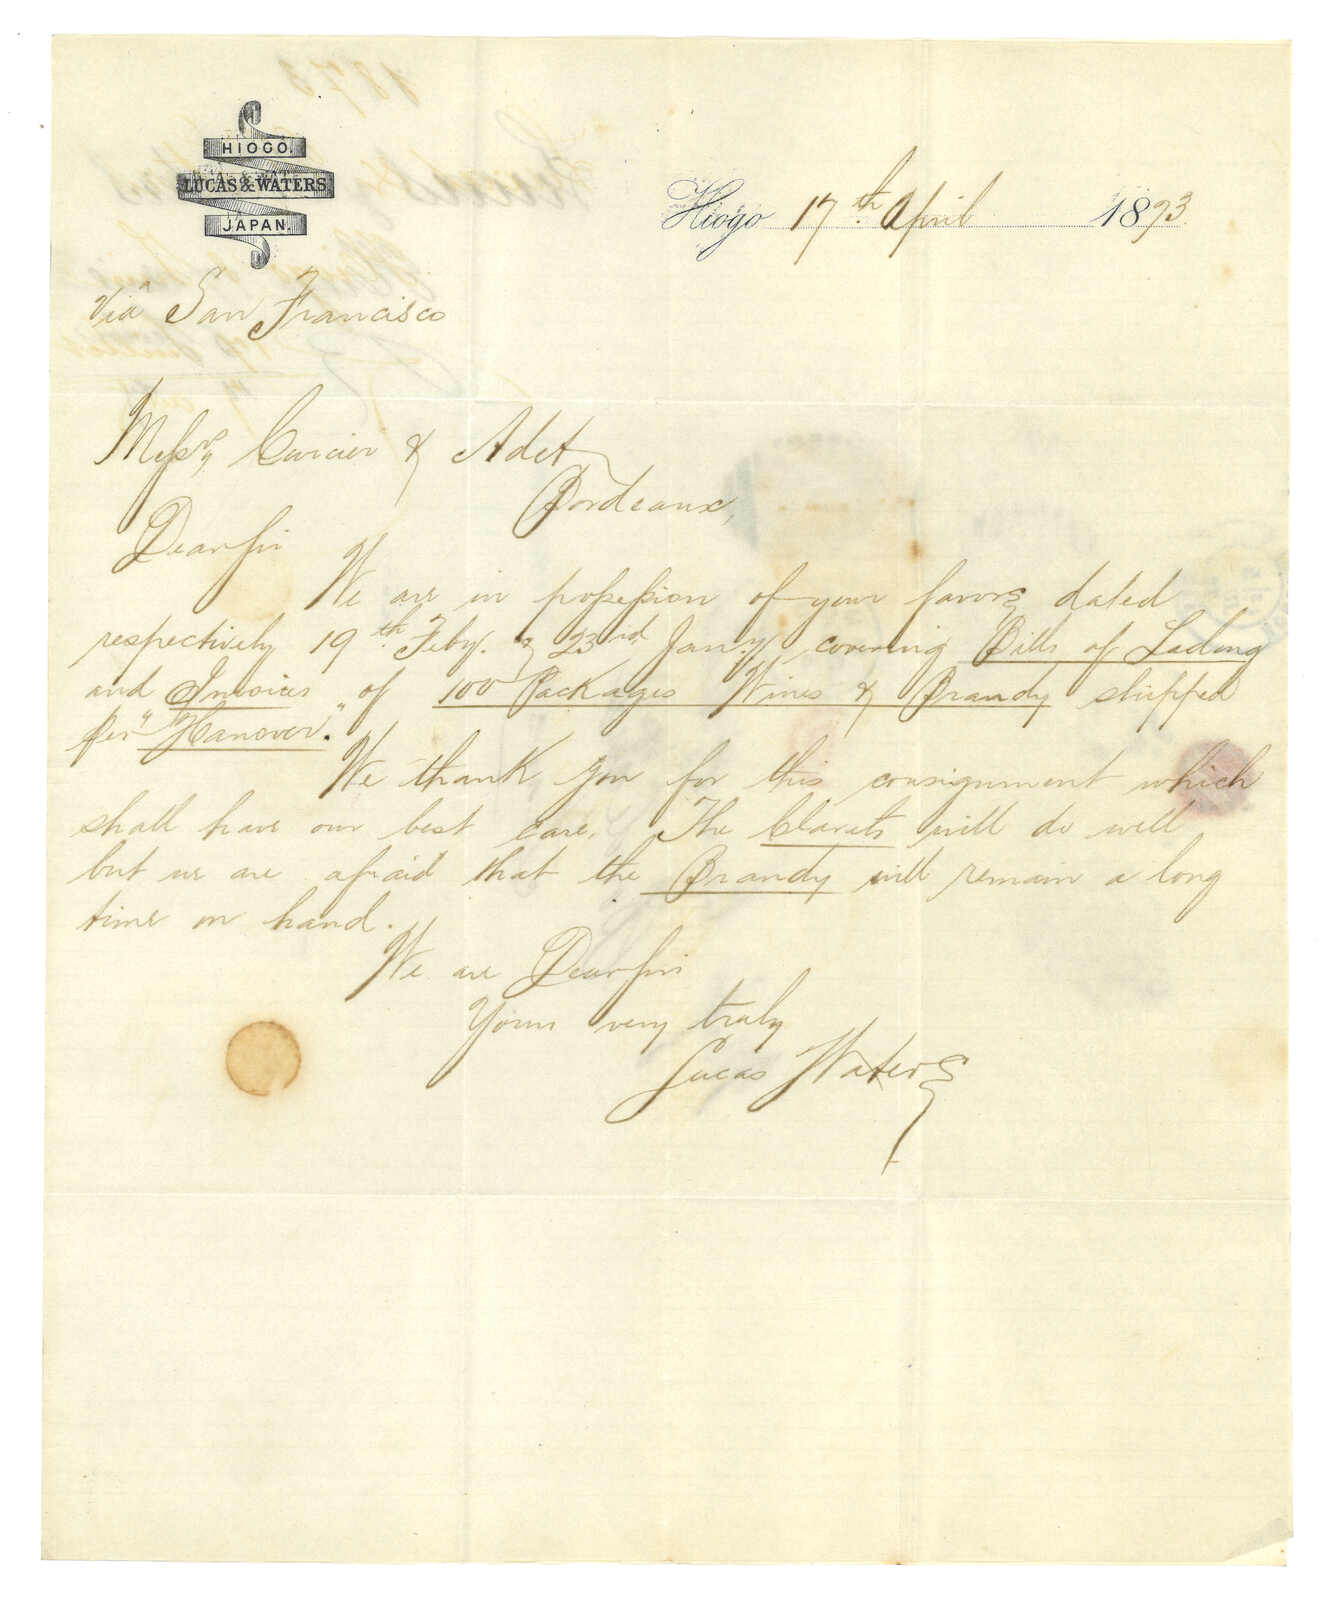 HIOGO.
LUCAS & WATERS
JAPAN.
Hiogo 17th April 1873
Viâ San Francisco
Messrs Curcier & Adet
Bordeaux,
Dear Sirs
We are in possession of your favors dated
respectively 19th Feby. & 23rd Jany. covering Bills of Lading
and Invoices of 100 Packages Wines & Brandy shipped
per "Hanover."
We thank you for this consignment which
shall have our best care. The Clarets will do well
but we are afraid that the Brandy will remain a long
time on hand.
We are Dear Sirs
Yours very truly
Lucas Waters